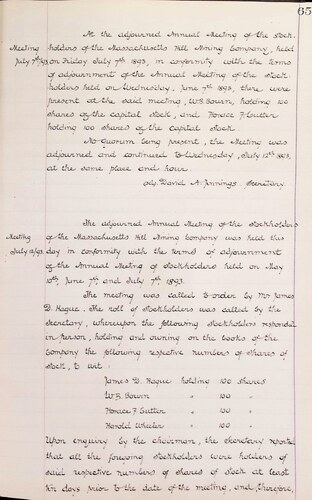 65
At the adjourned Annual Meeting of the stock-
Meeting July 7th, 93
holders of the Massachusetts Hill Mining Company, held
on Friday July 7th 1893, in conformity with the terms
of adjournment of the Annual Meeting of the stock
holders held on Wednesday, June 7th 1893, there were
present at the said meeting, W.B. Bourn, holding 100
shares of the capital stock, and Horace F. Cutter
holding 100 shares of the capital stock
No quorum being present, the Meeting was
adjourned and continued to Wednesday, July 12th 1893,
at the same place and hour.
David A. Jennings Secretary
The adjourned Annual Meeting of the stockholders
Meeting July 12/93
of the Massachusetts Hill Mining Company was held this
day in conformity with the terms of adjournment
of the Annual Meeting of stockholders held on May
10th, June 7th, and July 7th 1893.
The meeting was called to order by Mr James
D. Hague. The roll of stockholders was called by the
Secretary, whereupon the following stockholders responded
in person, holding and owning on the books of the
Company the following respective numbers of shares of
stock, to wit:
James D. Hague holding 100 shares
W.B. Bourn " 100 "
Horace F. Cutter " 100 "
Harold Wheeler " 100 "
Upon enquiry by the chairman, the secretary reported
that all the forgoing stockholders were holders of
said respective numbers of shares of stock at least
ten days prior to the date of the meeting, and therefore,